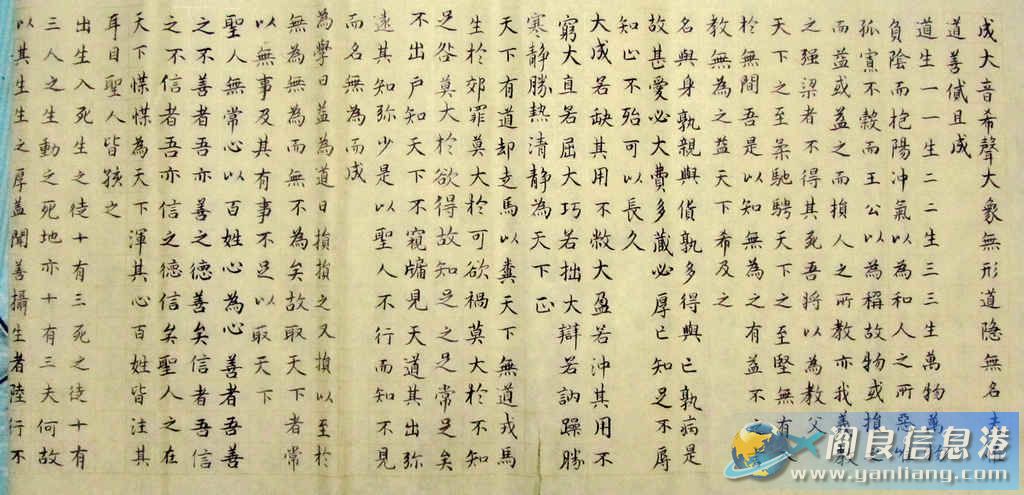 成大音希聲大象無形道隱無名夫唯
道善貸且成
道生一一生二二生三三生萬物萬物
負陰而抱陽冲氣以為和人之所惡唯
孤寡不穀而王公以為稱故物或損之
而益或益之而損人之所教亦我義教
之强梁者不得其死吾將以為教父
天下之至柔馳騁天下之至堅無有入
於無間吾是以知無為之有益不言之
教無為之益天下希及之
名與身孰親與貨孰多得與亡孰病是
故甚愛必大費多藏必厚亡知足不辱
知止不殆可以長久
大成若缺其用不敝大盈若沖其用不
窮大直若屈大巧若拙大辯若訥躁勝
寒静勝熱清静為天下正
天下有道却走馬以糞天下無道戎馬
生於郊罪莫大於可欲禍莫大於不知
足咎莫大於欲得故知足之足常足矣
不出戶知天下不窺牖見天道其出彌
遠其知弥少是以聖人不行而知不見
而名無為而成
為學日益為道日損損之又損以至於
無為無為而無不為矣故取天下者常
以無事及其有事不足以取天下
聖人無常心以百姓心為心善者吾善
之不善者吾亦善之德善矣信者吾信
之不信者吾亦信之德信矣聖人之在
天下惵惵為天下渾其心百姓皆注其
耳目聖人皆孩之
出生入死生之徒十有三死之徒十有
三人之生動之死地亦十有三夫何故
以其生生之厚蓋聞善攝生者陸行不
阎良信息港
www.yanliang.com